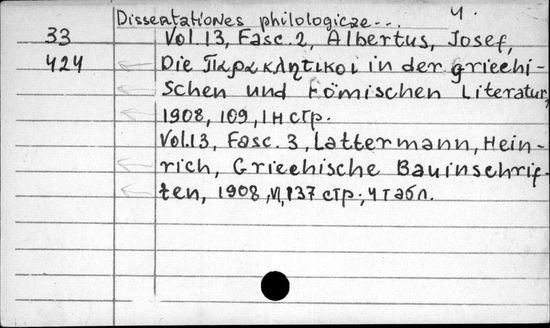 Dissertationes philologicae... 4.
33 Vol. 13, Fasc. 2, Albertus, Josef,
424 Die Παρακλητικοι in der griechi-
schen und römischen Literatur,
1908, 109, 1 н стр.
Vol. 13, Fasc. 3, Lattermann, Hein-
rich, Griechische Bauinschrif-
ten, 1908, VI, 137 стр.; 4 табл.